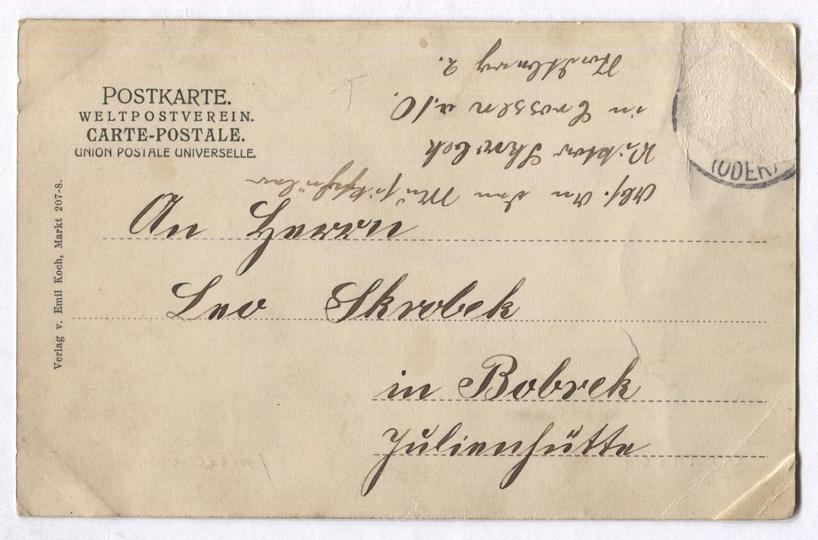 POSTKARTE.
WELTPOSTVEREIN.
CARTE-POSTALE.
UNION POSTALE UNIVERSELLE.
Verlag v. Emil Koch, Markt 207-8.
An Herrn
Leo Skrobek
in Bobrek
Julienhütte
Abs. An den Musikschüler
Viktor Skrobek
in Crossen a./O.
2.
(ODER)